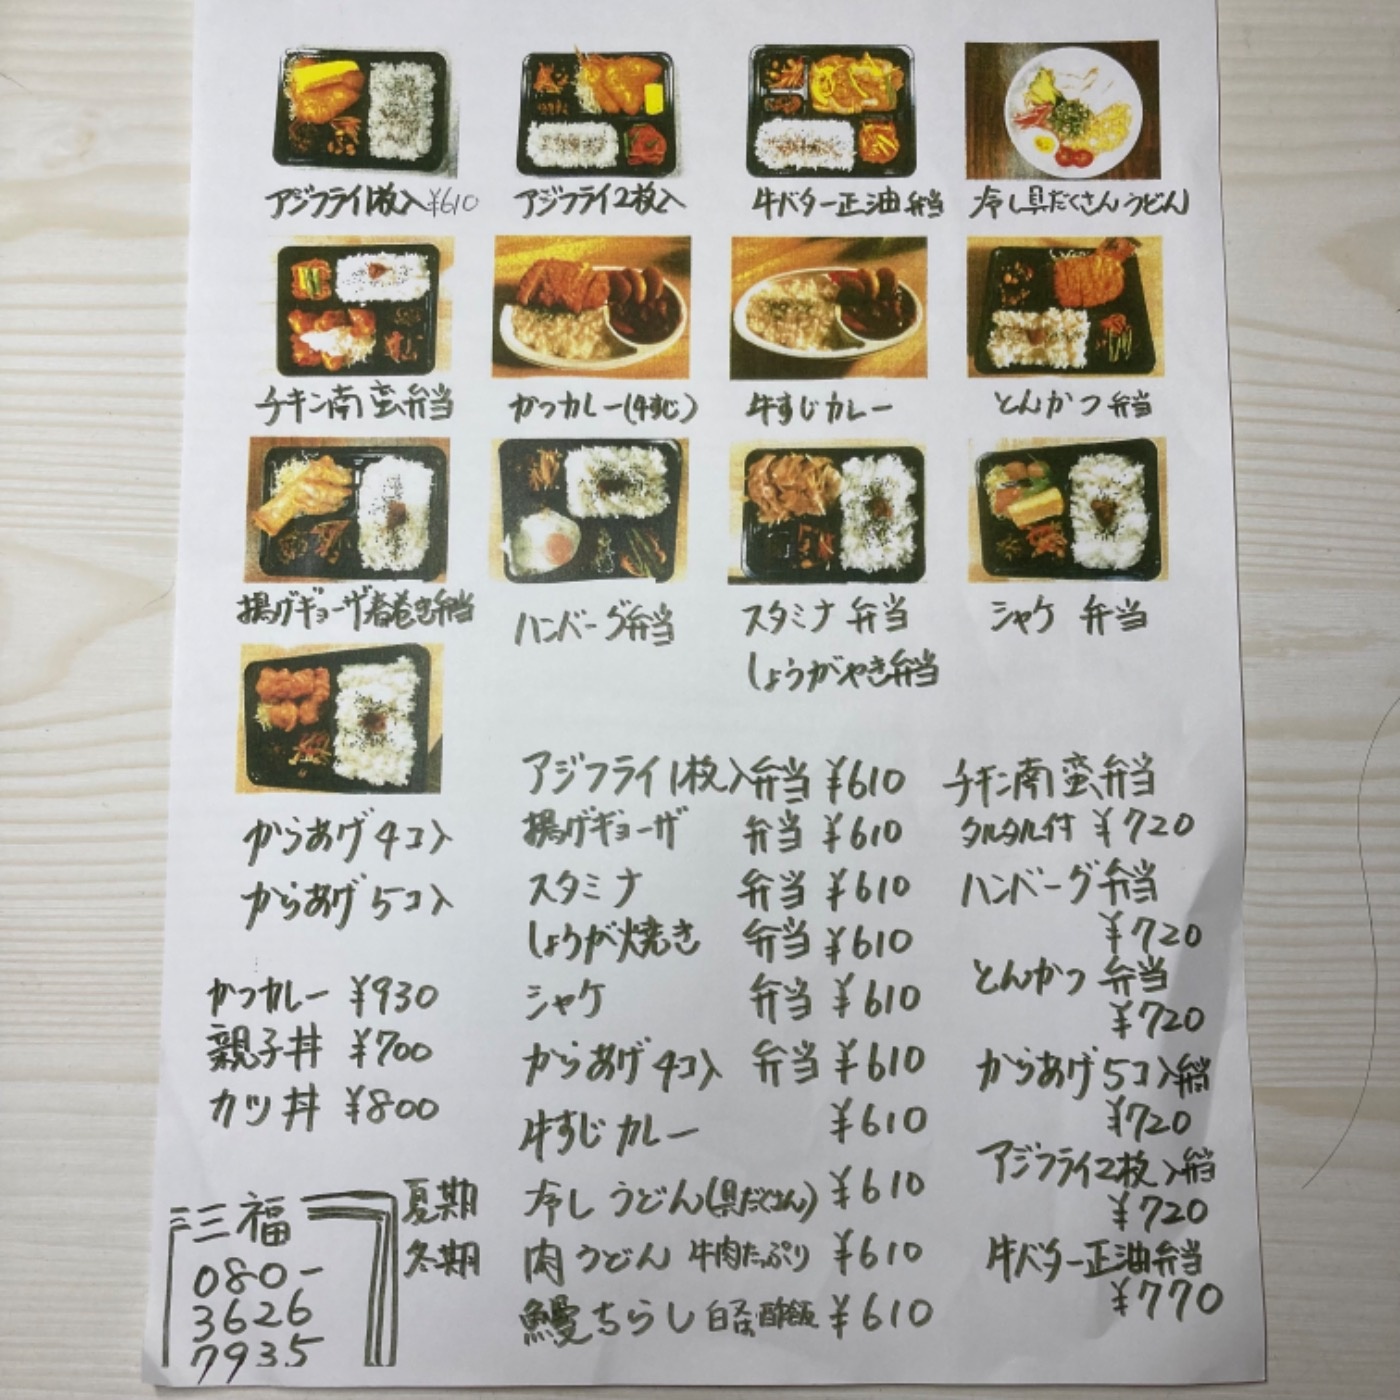 アジフライ1枚入 ¥610
アジフライ2枚入
牛バター正油弁当
冷し具だくさんうどん
チキン南蛮弁当
かつカレー(牛すじ)
牛すじカレー
とんかつ弁当
揚げギョーザ春巻き弁当
ハンバーグ弁当
スタミナ弁当
しょうがやき弁当
シャケ 弁当
からあげ4コ入
からあげ5コ入
かつカレー ¥930
親子丼 ¥700
カツ丼 ¥800
三福
080-
3626
7935
アジフライ1枚入弁当 ¥610
揚げギョーザ 弁当 ¥610
スタミナ 弁当 ¥610
しょうが焼き 弁当 ¥610
シャケ 弁当 ¥610
からあげ4コ入 弁当 ¥610
牛すじカレー ¥610
夏期 冷しうどん(具だくさん) ¥610
冬期 肉うどん 牛肉たっぷり ¥610
鰻ちらし 酢飯 ¥610
チキン南蛮弁当
タルタル付 ¥720
ハンバーグ弁当
¥720
とんかつ弁当
¥720
からあげ5コ入弁当
¥720
アジフライ2枚入弁当
¥720
牛バター正油弁当
¥770